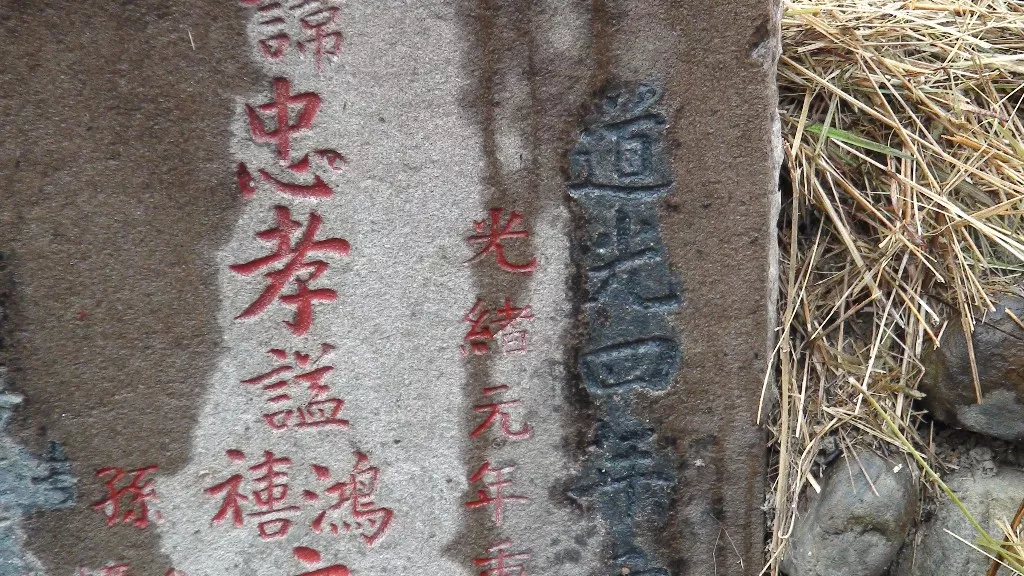 道光四年
光緒元年重
諦忠孝謚
鴻
禧
孫